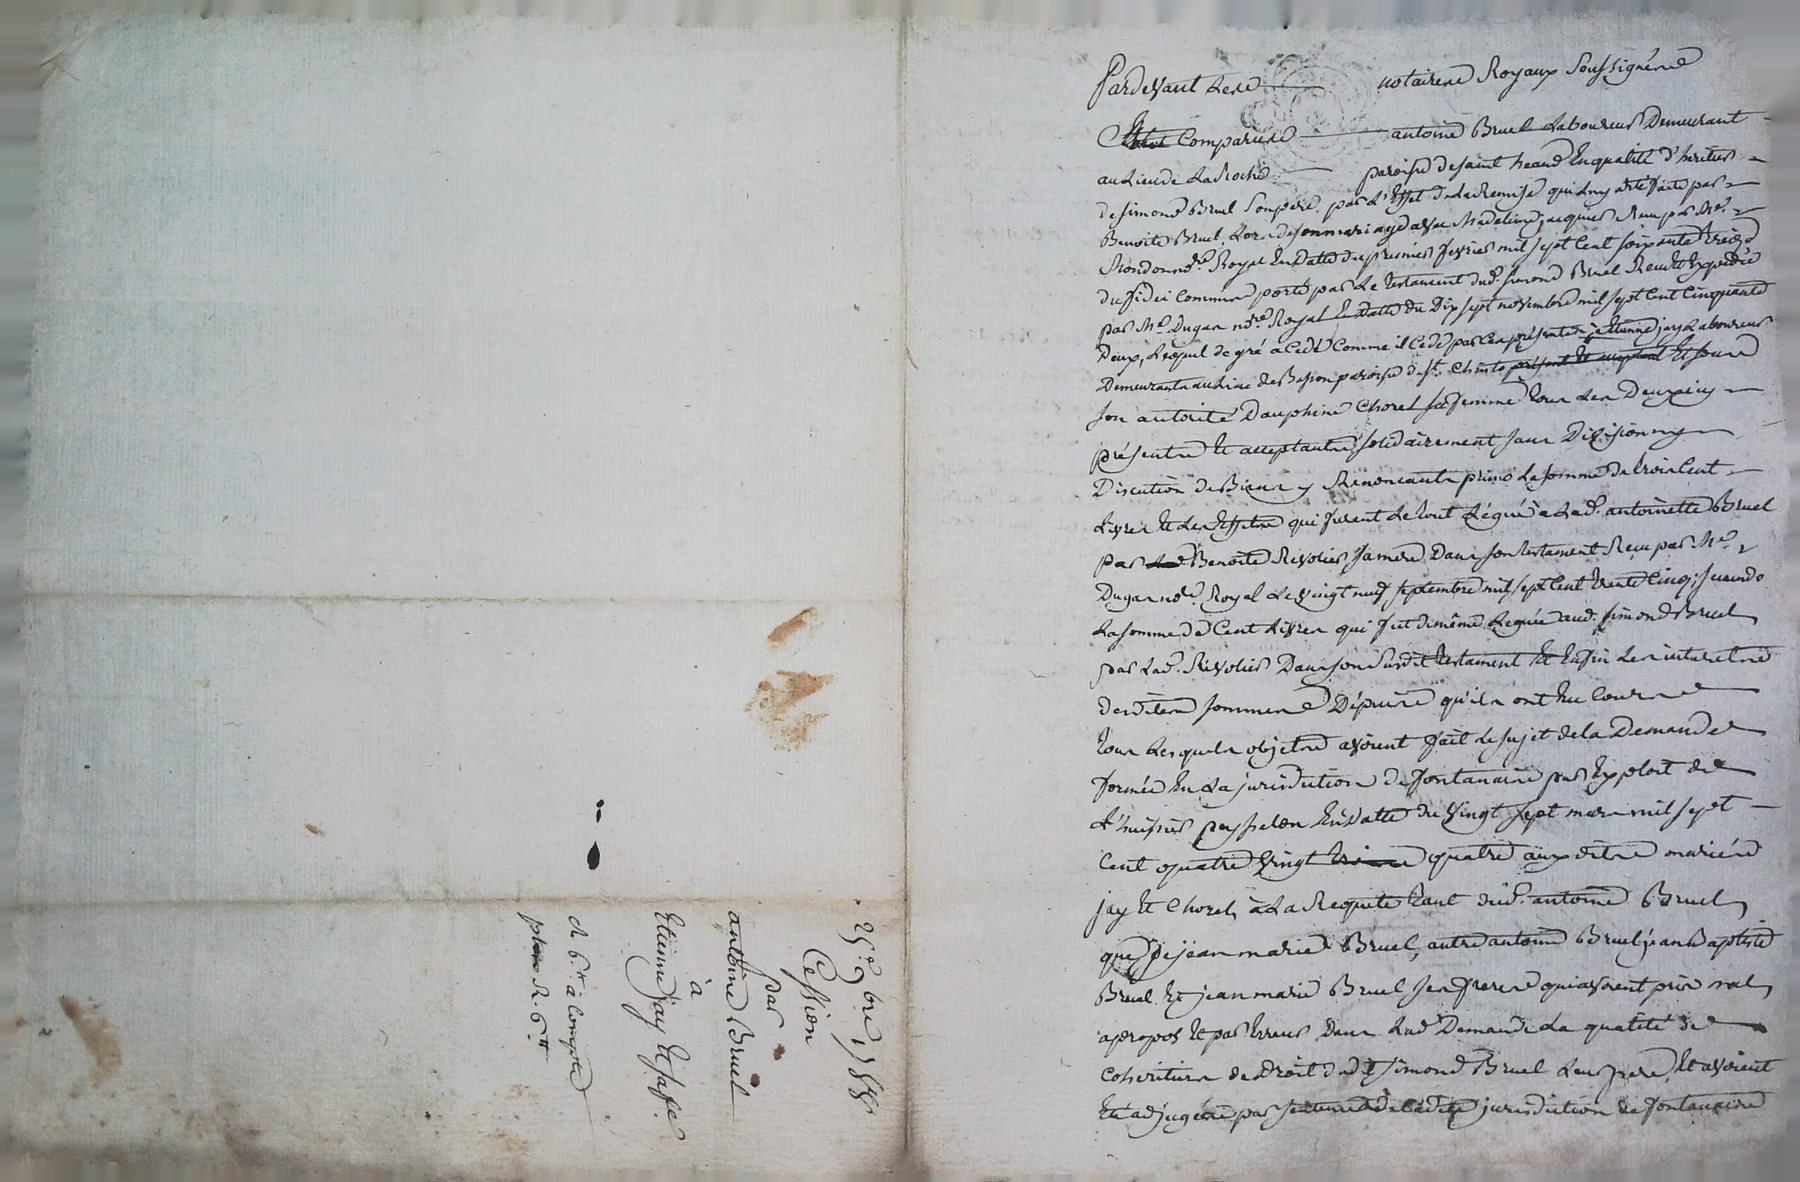 25e 9bre 1788
Cession
par
antoine Bruel
à
Etienne jay et sa fe.
R 6tt à compte
plus R. 6tt
Pardevant Les notaires Royaux soussignés
Comparu antoine Bruel Laboureur Demeurant
au Lieu de La Roche paroisse de saint heand En qualité d'heritier
de simond Bruel son pere, par L'Effet de La Remise qui Luy a été faite par
Benoite Bruel, Lors de son mariage avec Madelaine jacquier Reçu par Me.
Rondon nore. Royal En Datte du premier fevrier mil sept Cent soixante treize
du fidei Commis porté par Le testament dud. simond Bruel Reçu Et Expedié
par Me Dugas nore Royal En datte du Dix sept novembre mil sept Cent Cinquante
Deux, Lequel de gré a Cédé Comme il Cede par Ces présentes à Etienne jay Laboureur
Demeurant au Lieu de Basson paroisse de st. Christo présent Et acceptant Et sous
son autorité Dauphine Chorel sa femme tous Les Deux icy
présents Et acceptants solidairement sans Division ny
Discution de Biens y Renonçants primo La somme de trois Cent
Livres Et Les Effets qui furent Le tout Légué à Lad. antoinette Bruel
par Benoite Rivolier sa mere Dans son testament Reçu par Me
Dugas nore. Royal Le vingt neuf septembre mil sept Cent trente Cinq; secundo
La somme de Cent Livres qui fut de même Léguée aud. simond Bruel
par Lad. Rivolier Dans son susdit testament Et Enfin Les interets
desdites sommes Dépuis qu'ils ont Eu Cours
tous Lesquels objets avoient fait Le sujet de la Demande
formée En La jurisdiction de fontanais par Exploit de
L'huissier peysselon En Datte du vingt sept mars mil sept
Cent quatre vingt quatre aux dits mariés
jay Et Chorel, à La Requete tant dud. antoine Bruel,
que de jean marie Bruel, autre antoine Bruel jean Baptiste
Bruel Et jean marie Bruel ses freres qui avoient pris mal
apropos Et par Erreur Dans Lad. Demande La qualité de
Coheritiers de Droit dud. simond Bruel Leur pere, Et avoient
Eté adjugés par sentence de Ladite jurisdiction de fontanais